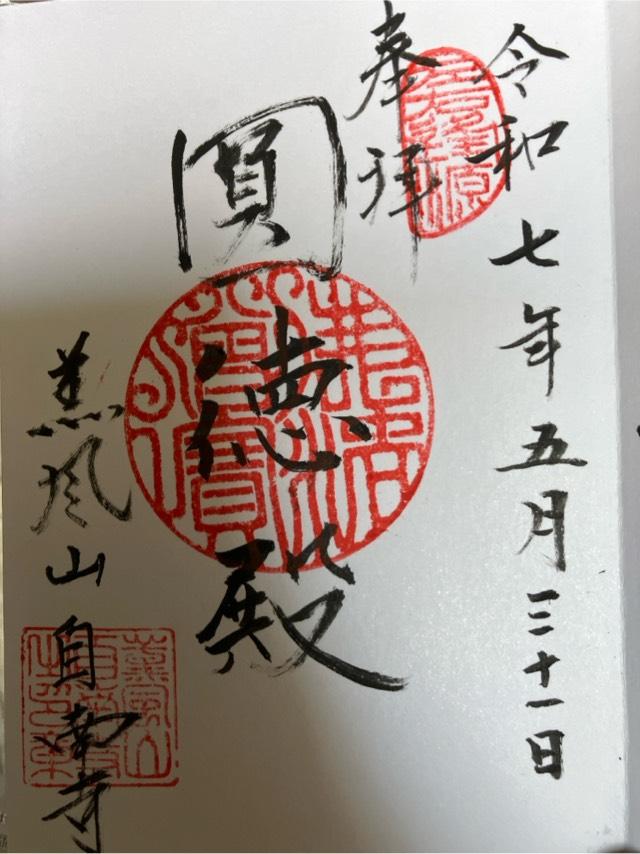 令和七年五月三十一日
奉拝
圓徳殿
薫風山自南寺